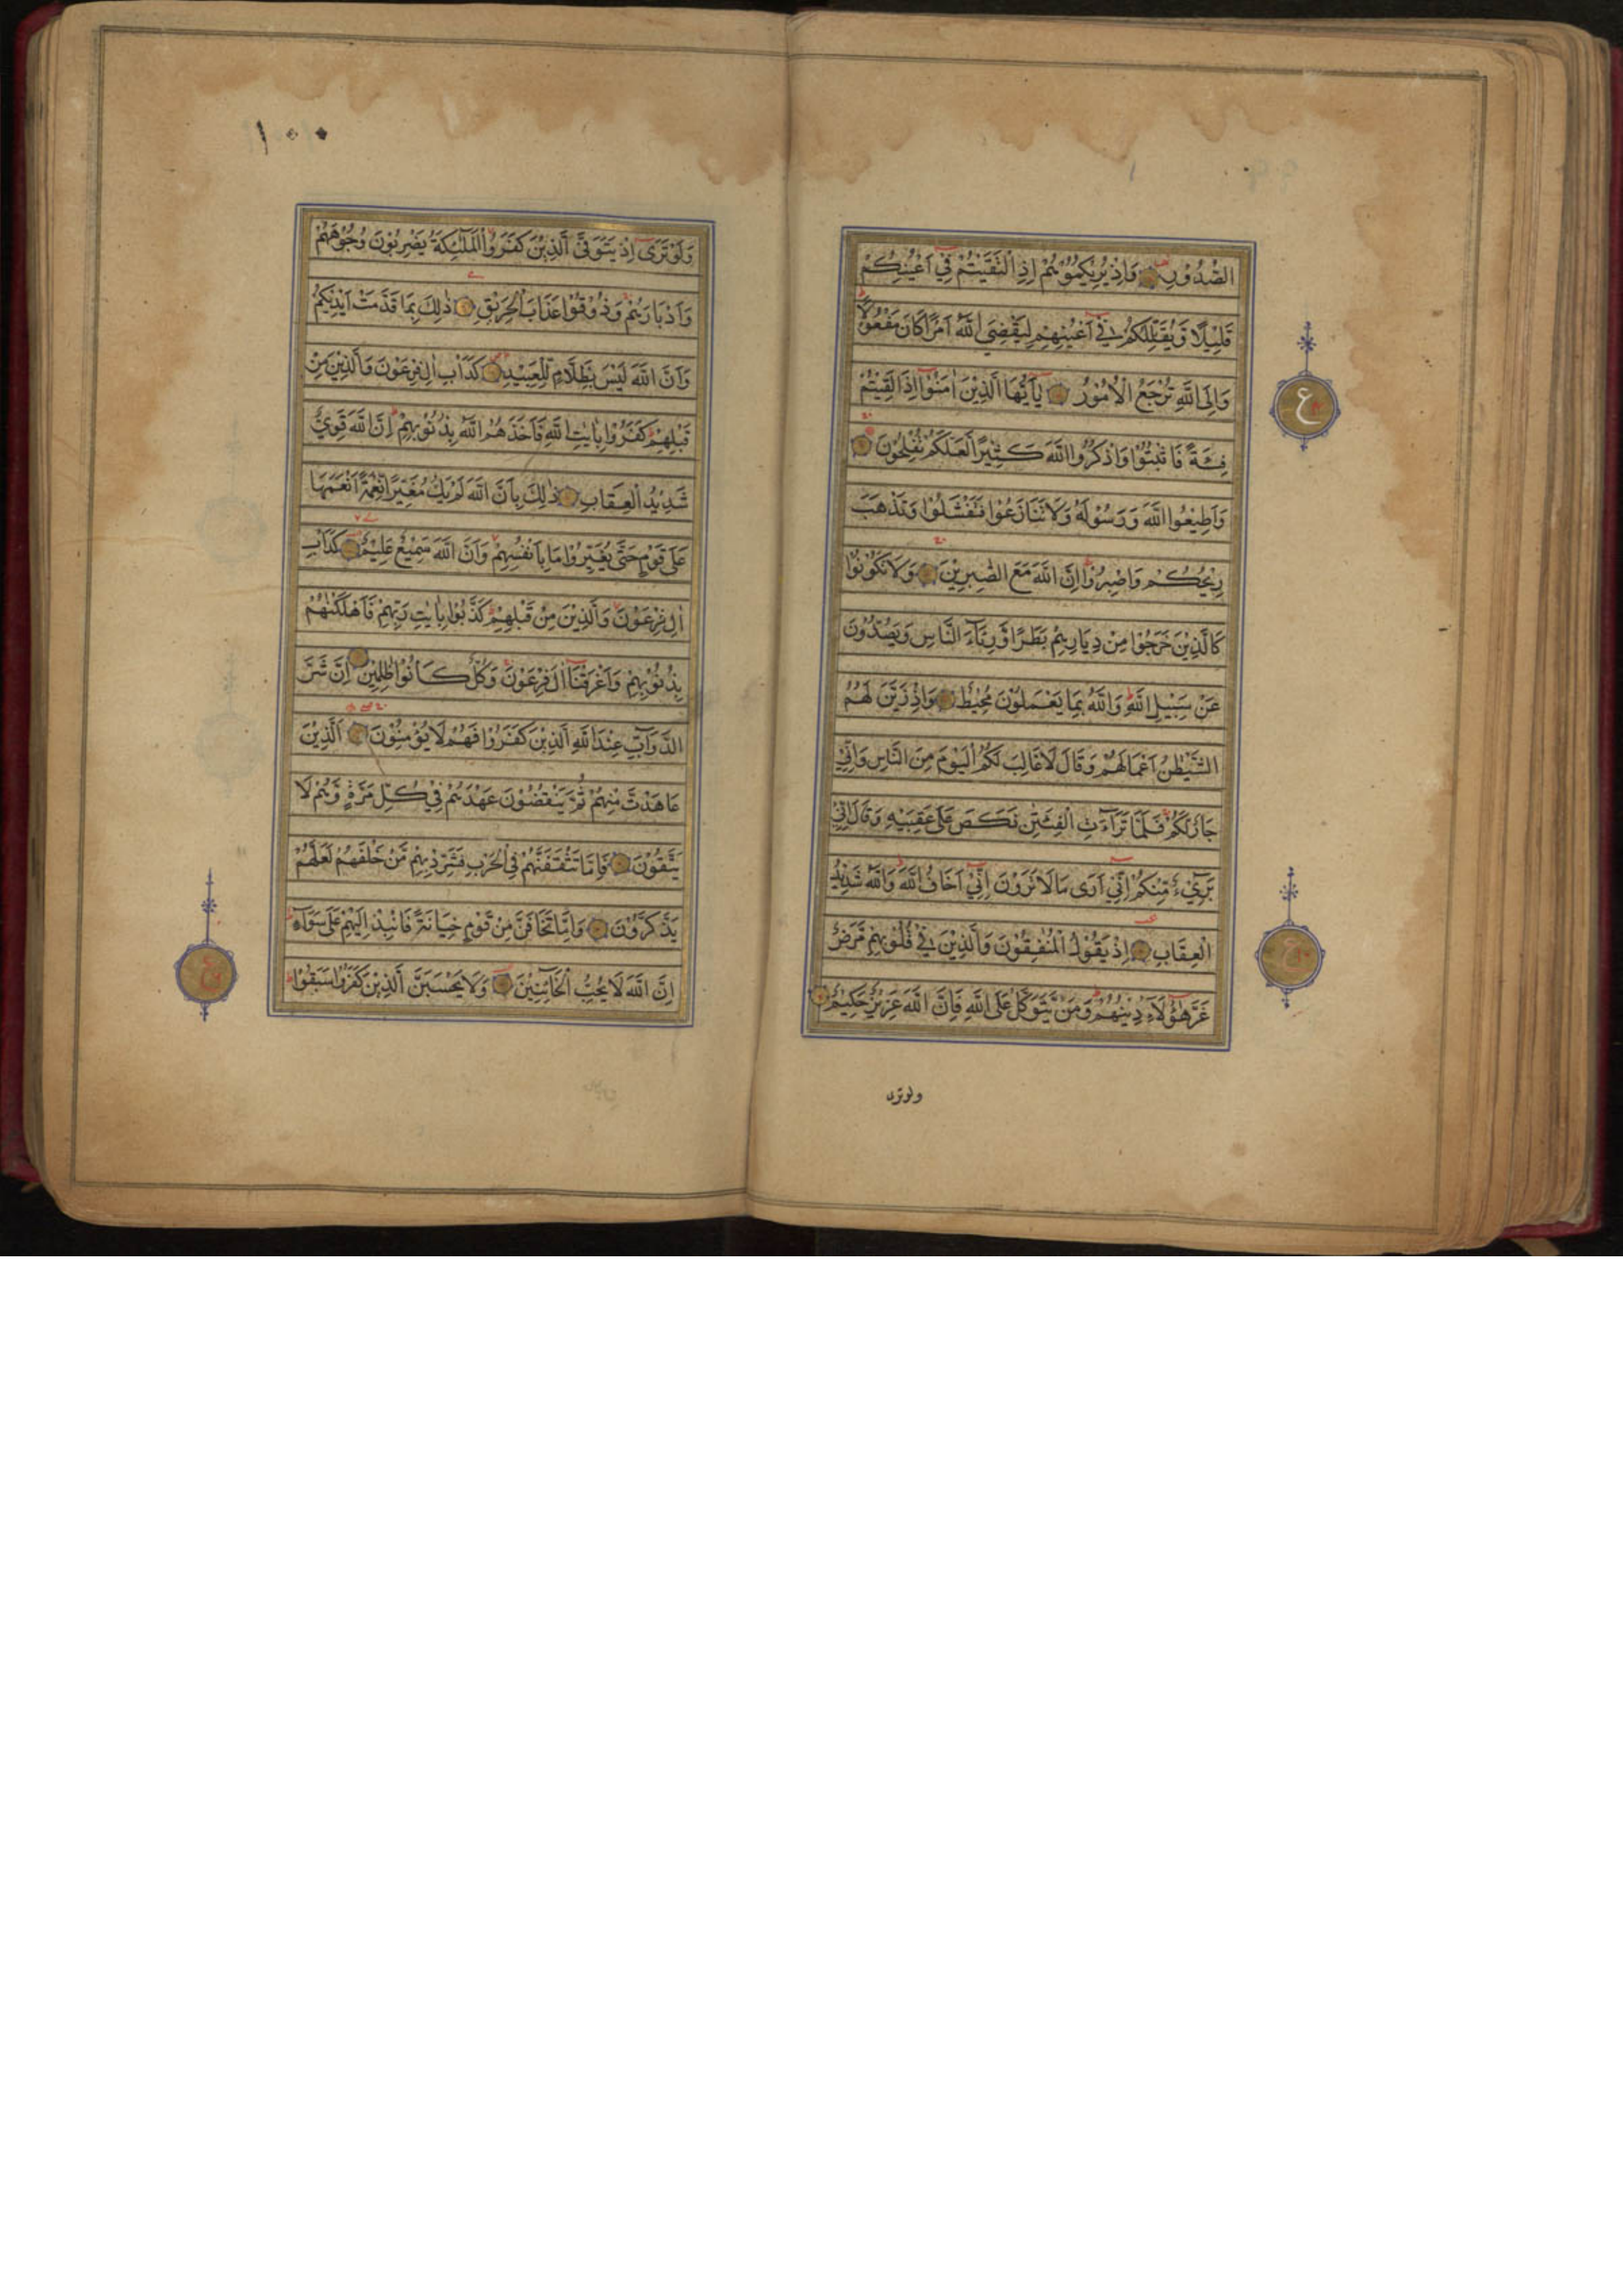 الصُّدُوْرِ وَاِذْ يُرِيْكُمُوْهُمْ اِذِ الْتَقَيْتُمْ فِيْٓ اَعْيُنِكُمْ
قَلِيْلًا وَّيُقَلِّلُكُمْ فِيْٓ اَعْيُنِهِمْ لِيَقْضِيَ اللّٰهُ اَمْرًا كَانَ مَفْعُوْلًا ط
وَاِلَى اللّٰهِ تُرْجَعُ الْاُمُوْرُ يٰٓاَيُّهَا الَّذِيْنَ اٰمَنُوْٓا اِذَا لَقِيْتُمْ
فِئَةً فَاثْبُتُوْا وَاذْكُرُوا اللّٰهَ كَثِيْرًا لَعَلَّكُمْ تُفْلِحُوْنَ
وَاَطِيْعُوا اللّٰهَ وَرَسُوْلَهٗ وَلَا تَنَازَعُوْا فَتَفْشَلُوْا وَتَذْهَبَ
رِيْحُكُمْ وَاصْبِرُوْا ط اِنَّ اللّٰهَ مَعَ الصّٰبِرِيْنَ وَلَا تَكُوْنُوْا
كَالَّذِيْنَ خَرَجُوْا مِنْ دِيَارِهِمْ بَطَرًا وَّرِئَآءَ النَّاسِ وَيَصُدُّوْنَ
عَنْ سَبِيْلِ اللّٰهِ ط وَاللّٰهُ بِمَا يَعْمَلُوْنَ مُحِيْطٌ وَاِذْ زَيَّنَ لَهُمُ
الشَّيْطٰنُ اَعْمَالَهُمْ وَقَالَ لَا غَالِبَ لَكُمُ الْيَوْمَ مِنَ النَّاسِ وَاِنِّيْ
جَارٌ لَكُمْ فَلَمَّا تَرَآءَتِ الْفِئَتٰنِ نَكَصَ عَلٰى عَقِبَيْهِ وَقَالَ اِنِّيْ
بَرِيْٓءٌ مِّنْكُمْ اِنِّيْٓ اَرٰى مَا لَا تَرَوْنَ اِنِّيْٓ اَخَافُ اللّٰهَ ط وَاللّٰهُ شَدِيْدُ
الْعِقَابِ اِذْ يَقُوْلُ الْمُنٰفِقُوْنَ وَالَّذِيْنَ فِيْ قُلُوْبِهِمْ مَّرَضٌ
غَرَّ هٰٓؤُلَآءِ دِيْنُهُمْ ط وَمَنْ يَّتَوَكَّلْ عَلَى اللّٰهِ فَاِنَّ اللّٰهَ عَزِيْزٌ حَكِيْمٌ
ولوترى
ع
ع
١٠٠
وَلَوْ تَرٰٓى اِذْ يَتَوَفَّى الَّذِيْنَ كَفَرُوا الْمَلٰٓئِكَةُ يَضْرِبُوْنَ وُجُوْهَهُمْ
وَاَدْبَارَهُمْ وَذُوْقُوْا عَذَابَ الْحَرِيْقِ ذٰلِكَ بِمَا قَدَّمَتْ اَيْدِيْكُمْ
وَاَنَّ اللّٰهَ لَيْسَ بِظَلَّامٍ لِّلْعَبِيْدِ كَدَاْبِ اٰلِ فِرْعَوْنَ وَالَّذِيْنَ مِنْ
قَبْلِهِمْ ط كَفَرُوْا بِاٰيٰتِ اللّٰهِ فَاَخَذَهُمُ اللّٰهُ بِذُنُوْبِهِمْ ط اِنَّ اللّٰهَ قَوِيٌّ
شَدِيْدُ الْعِقَابِ ذٰلِكَ بِاَنَّ اللّٰهَ لَمْ يَكُ مُغَيِّرًا نِّعْمَةً اَنْعَمَهَا
عَلٰى قَوْمٍ حَتّٰى يُغَيِّرُوْا مَا بِاَنْفُسِهِمْ وَاَنَّ اللّٰهَ سَمِيْعٌ عَلِيْمٌ كَدَاْبِ
اٰلِ فِرْعَوْنَ وَالَّذِيْنَ مِنْ قَبْلِهِمْ ط كَذَّبُوْا بِاٰيٰتِ رَبِّهِمْ فَاَهْلَكْنٰهُمْ
بِذُنُوْبِهِمْ وَاَغْرَقْنَآ اٰلَ فِرْعَوْنَ وَكُلٌّ كَانُوْا ظٰلِمِيْنَ اِنَّ شَرَّ
الدَّوَآبِّ عِنْدَ اللّٰهِ الَّذِيْنَ كَفَرُوْا فَهُمْ لَا يُؤْمِنُوْنَ اَلَّذِيْنَ
عَاهَدْتَّ مِنْهُمْ ثُمَّ يَنْقُضُوْنَ عَهْدَهُمْ فِيْ كُلِّ مَرَّةٍ وَّهُمْ لَا
يَتَّقُوْنَ فَاِمَّا تَثْقَفَنَّهُمْ فِي الْحَرْبِ فَشَرِّدْ بِهِمْ مَّنْ خَلْفَهُمْ لَعَلَّهُمْ
يَذَّكَّرُوْنَ وَاِمَّا تَخَافَنَّ مِنْ قَوْمٍ خِيَانَةً فَانْبِذْ اِلَيْهِمْ عَلٰى سَوَآءٍ ط
اِنَّ اللّٰهَ لَا يُحِبُّ الْخَآئِنِيْنَ وَلَا يَحْسَبَنَّ الَّذِيْنَ كَفَرُوْا سَبَقُوْا ط